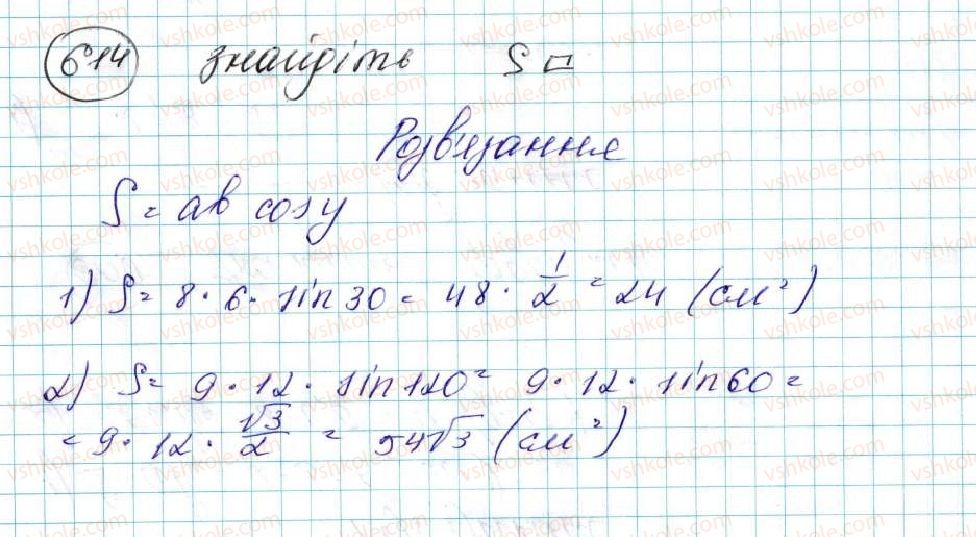 614 Знайдіть S □
Розв'язання
S = ab cosγ
1) S = 8 · 6 · sin 30 = 48 · 1/2 = 24 (см²)
2) S = 9 · 12 · sin 120 = 9 · 12 · sin 60 =
= 9 · 12 · √3/2 = 54√3 (см²)